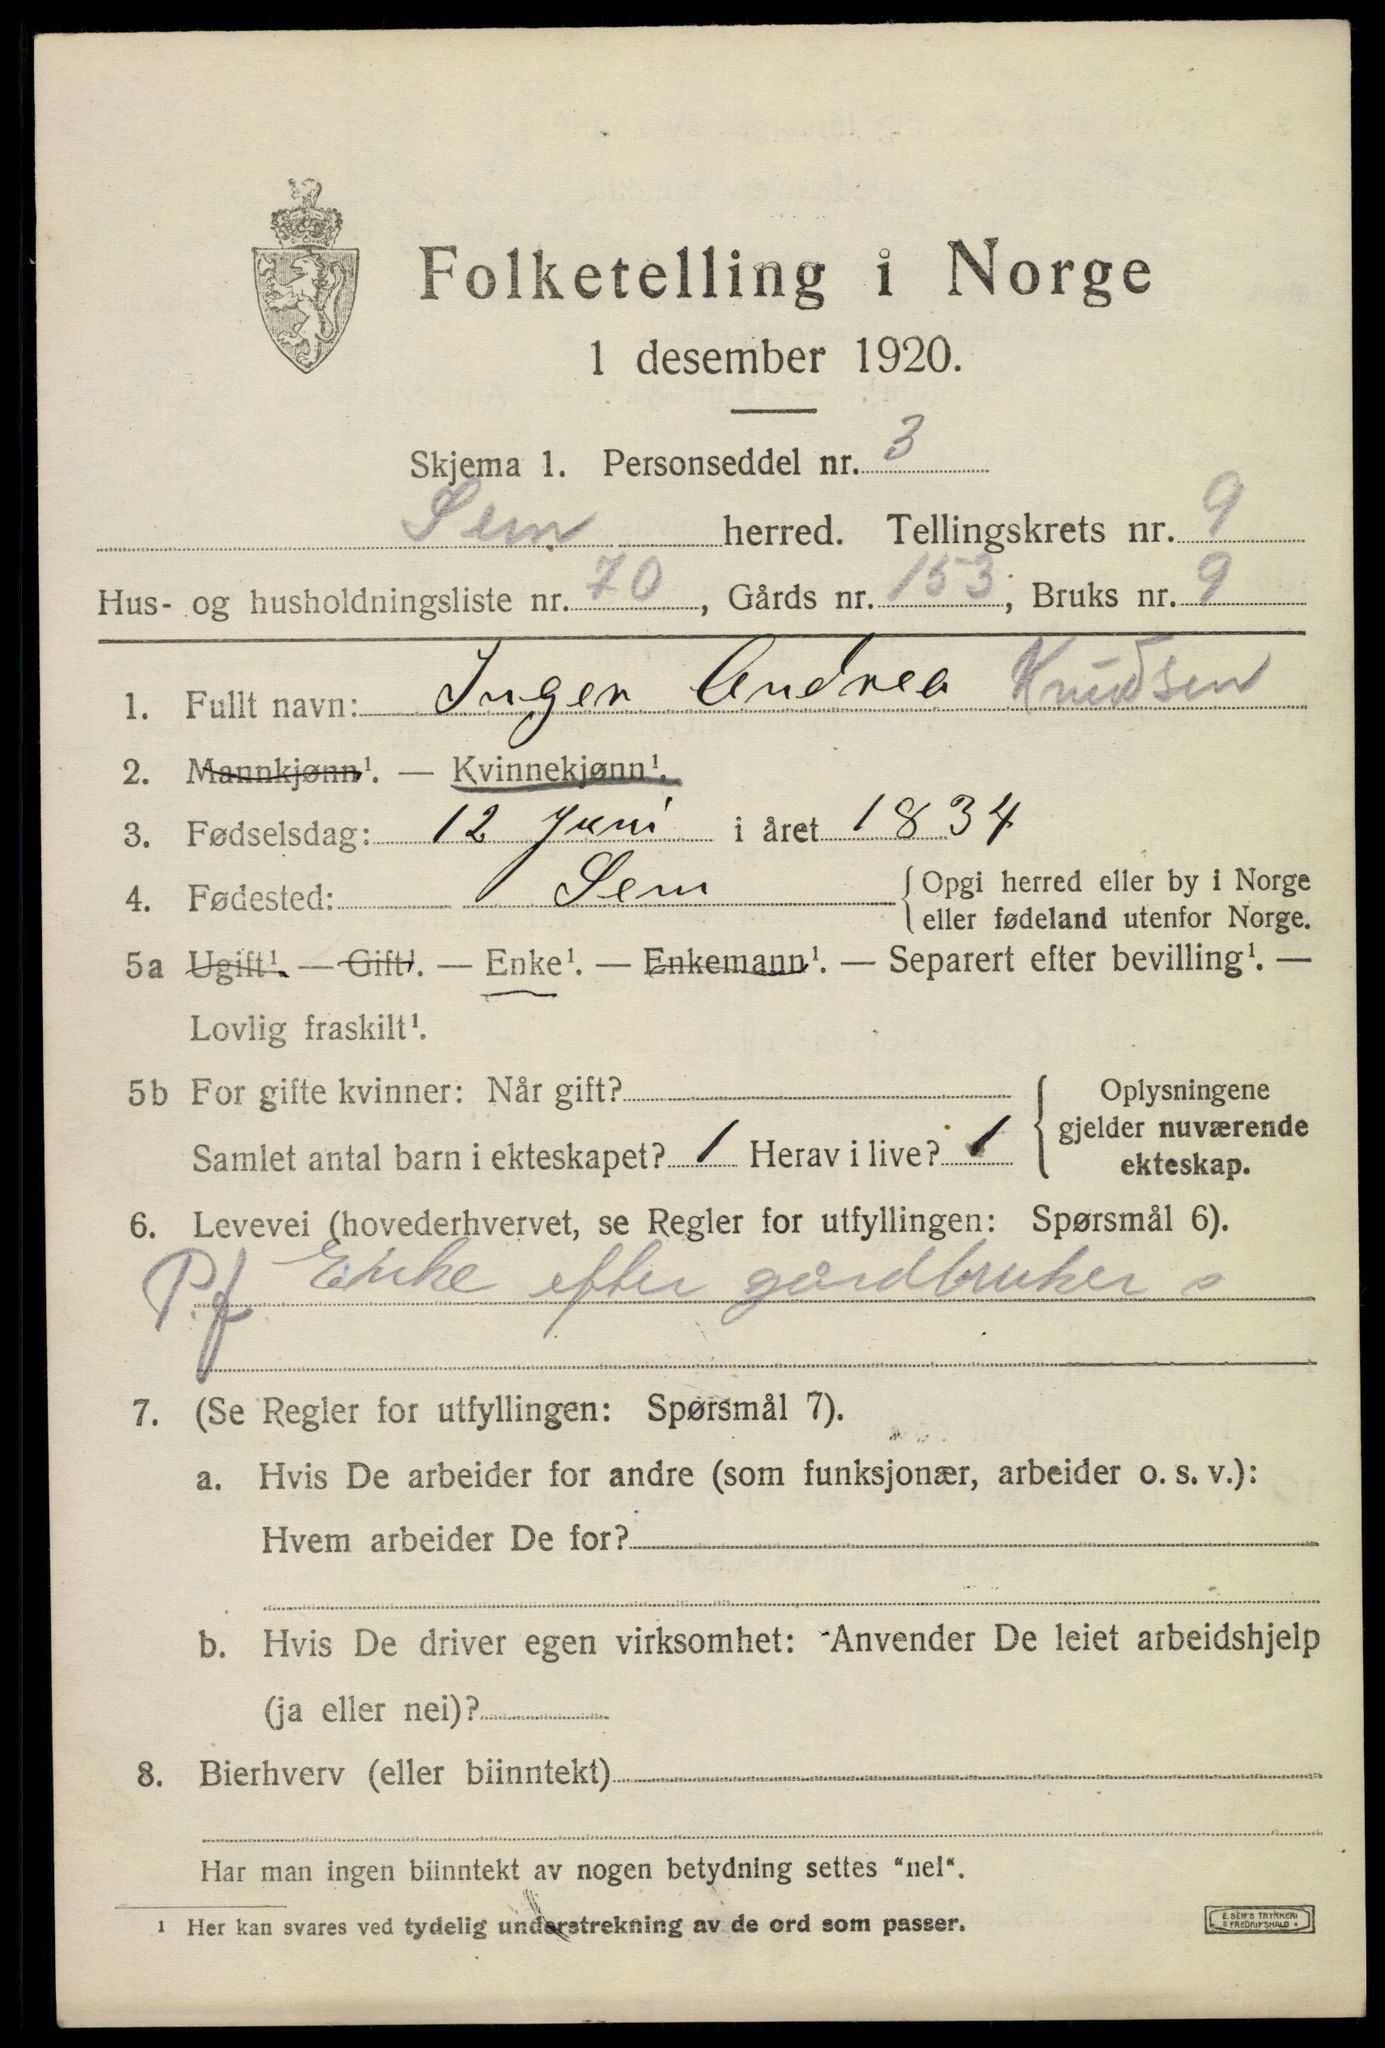 Folketelling i Norge
1 desember 1920.
Skjema 1. Personseddel nr. 3
Sem herred. Tellingskrets nr. 9
Hus- og husholdningsliste nr. 70, Gårds nr. 153, Bruks nr. 9
1. Fullt navn: Inger Andrea Knudsen
2. Mannkjønn¹. — Kvinnekjønn¹.
3. Fødselsdag: 12 Juni i året 1834
4. Fødested: Sem {Opgi herred eller by i Norge
eller fødeland utenfor Norge.
5a Ugift¹. — Gift¹. — Enke¹. — Enkemann¹. — Separert efter bevilling¹. —
Lovlig fraskilt¹.
5b For gifte kvinner: Når gift? Oplysningene
Samlet antal barn i ekteskapet? 1 Herav i live? 1 gjelder nuværende
ekteskap.
6. Levevei (hovederhvervet, se Regler for utfyllingen: Spørsmål 6).
P.f. Enke efter gårdbruker s
7. (Se Regler for utfyllingen: Spørsmål 7).
a. Hvis De arbeider for andre (som funksjonær, arbeider o. s. v.):
Hvem arbeider De for?
b. Hvis De driver egen virksomhet: Anvender De leiet arbeidshjelp
(ja eller nei)?
8. Bierhverv (eller biinntekt)
Har man ingen biinntekt av nogen betydning settes "nei".
¹ Her kan svares ved tydelig understrekning av de ord som passer.
E. SEM'S TRYKKERI
FREDRIKSHALD